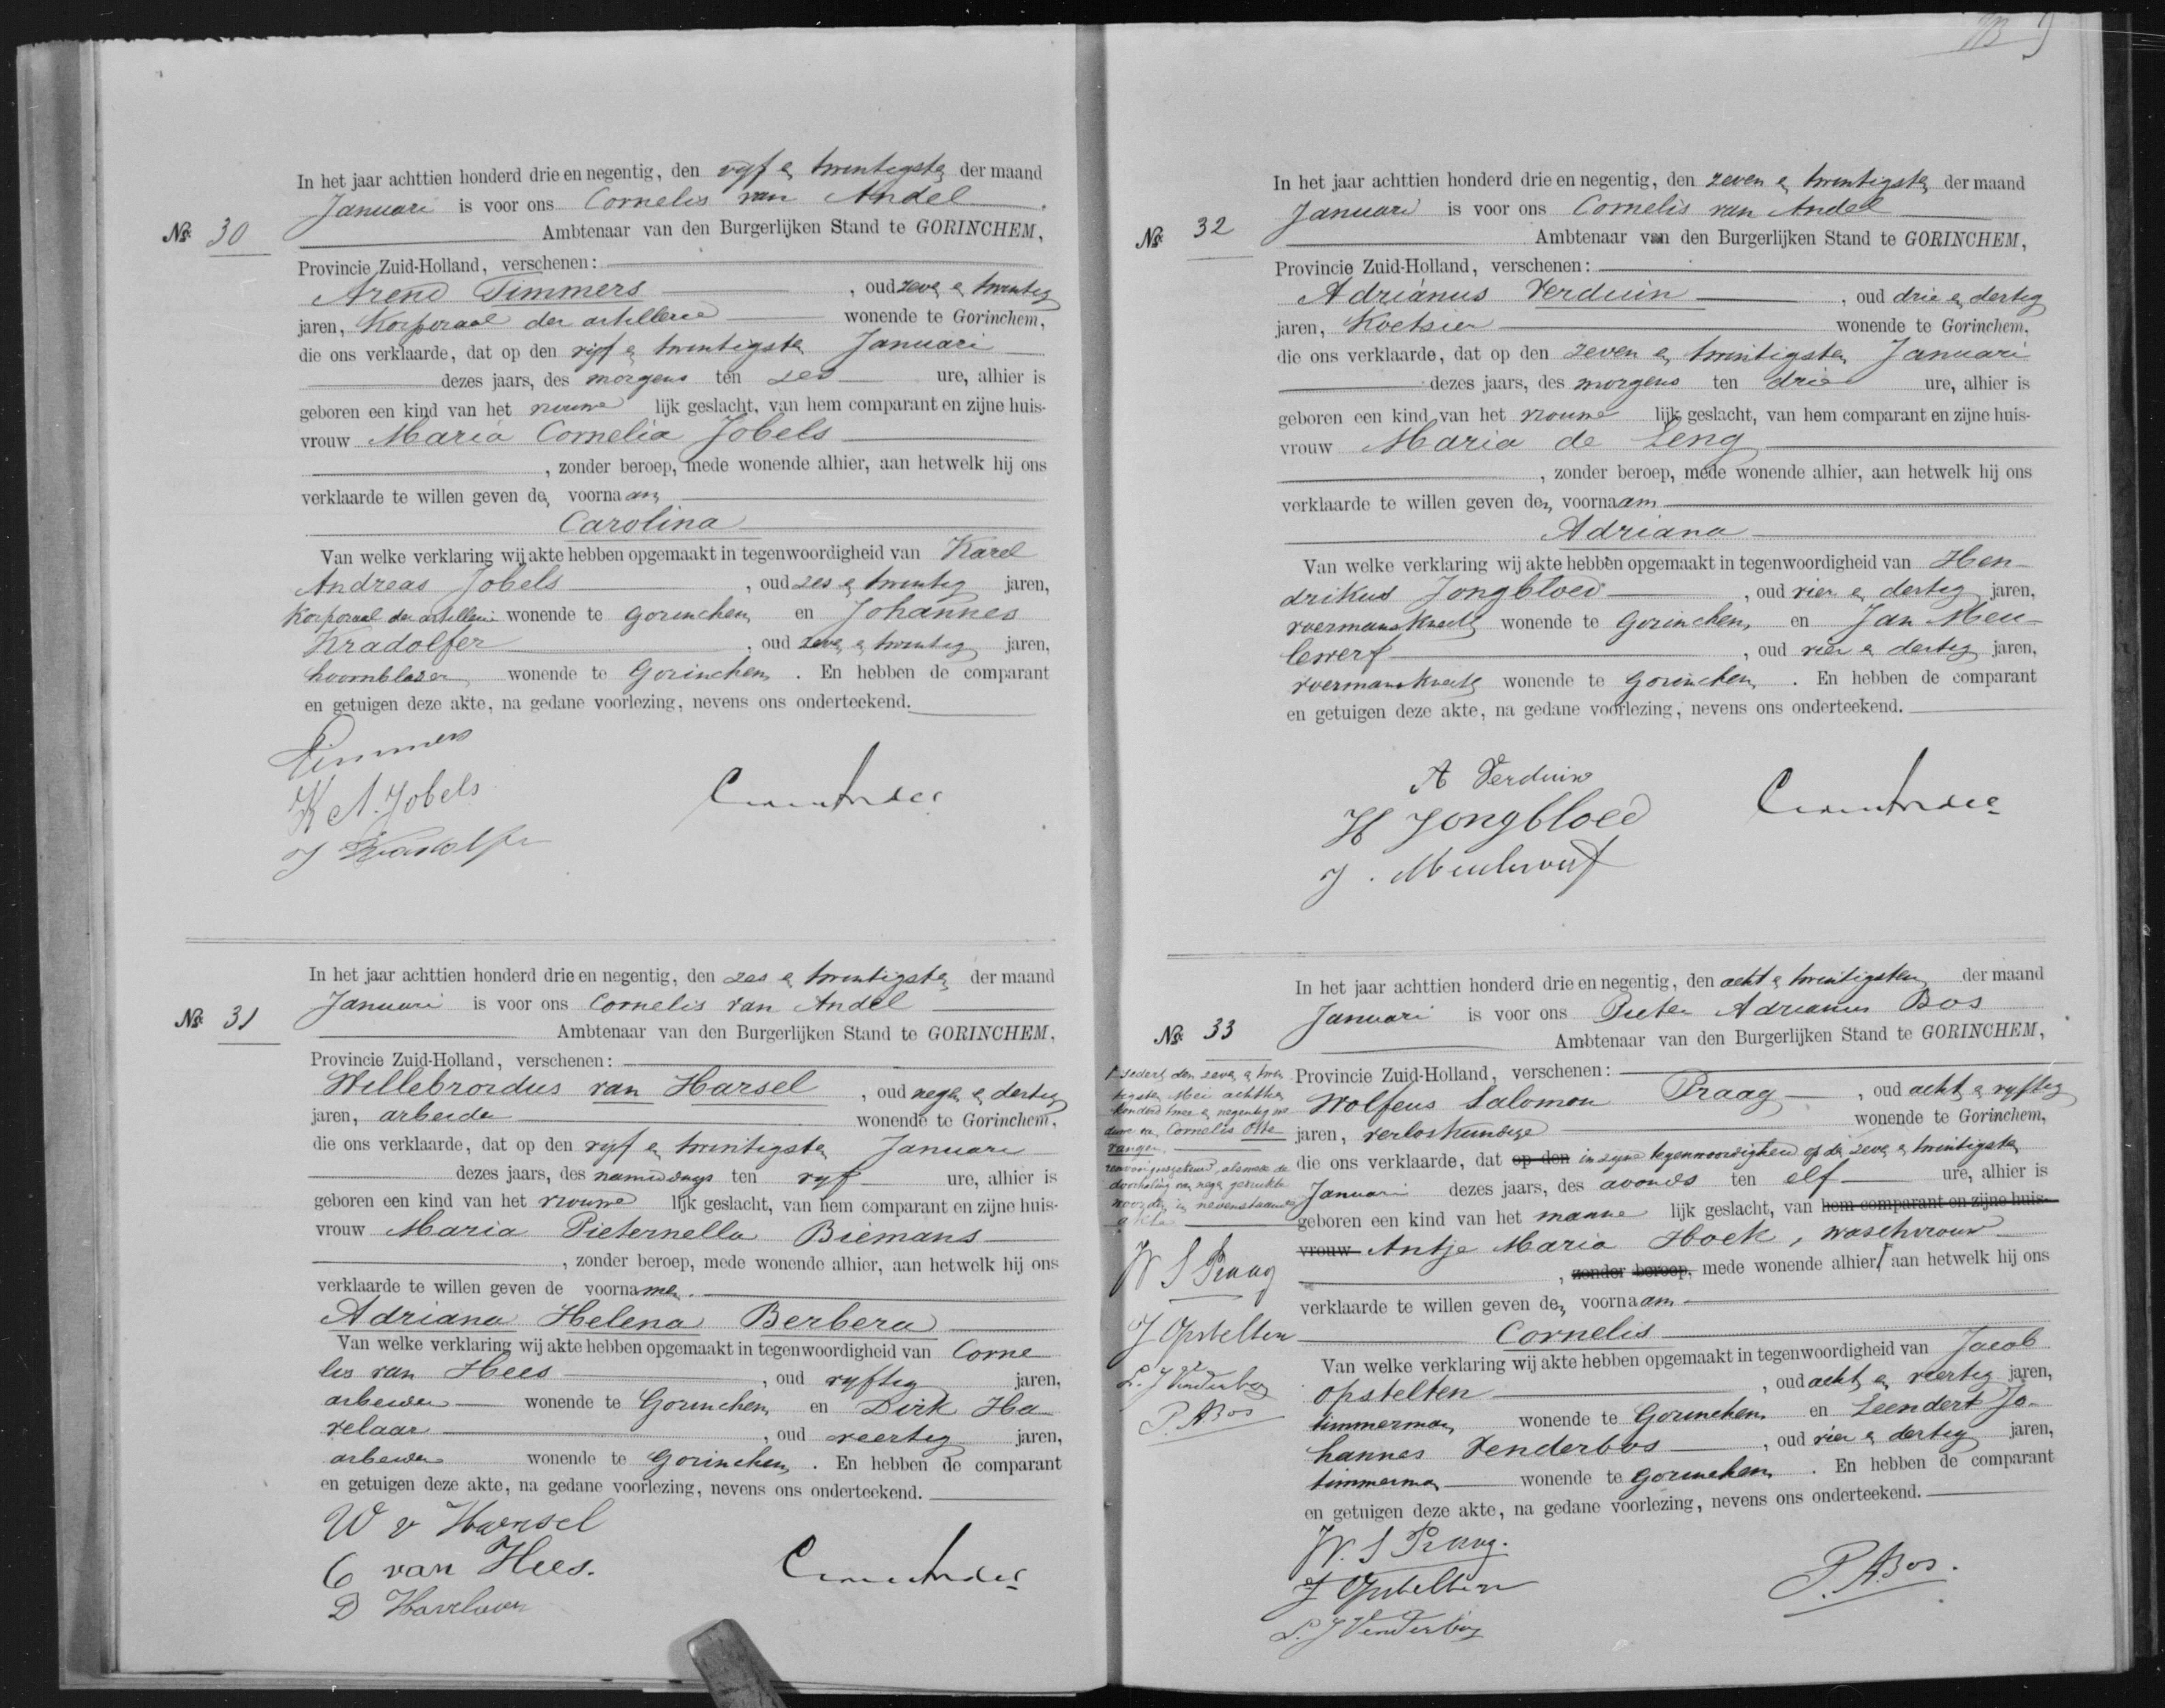 In het jaar achttien honderd drie en negentig, den vijf en twintigsten der maand
Januari is voor ons Cornelis van Andel
No. 30
Ambtenaar van den Burgerlijken Stand te GORINCHEM,
Provincie Zuid-Holland, verschenen:
Arend Timmers, oud zeven en twintig
jaren, Korporaal der artillerie wonende te Gorinchem,
die ons verklaarde, dat op den vijf en twintigsten Januari
dezes jaars, des morgens ten zes ure, alhier is
geboren een kind van het vrouwe lijk geslacht, van hem comparant en zijne huis-
vrouw Maria Cornelia Jobels
, zonder beroep, mede wonende alhier, aan hetwelk hij ons
verklaarde te willen geven den voornaam
Carolina
Van welke verklaring wij akte hebben opgemaakt in tegenwoordigheid van Karel
Andreas Jobels, oud zes en twintig jaren,
Korporaal der artillerie wonende te Gorinchem en Johannes
Kradolfer, oud zeven en twintig jaren,
hoornblazer wonende te Gorinchem. En hebben de comparant
en getuigen deze akte, na gedane voorlezing, nevens ons onderteekend.
Timmers
K A. Jobels
J Kradolfer
In het jaar achttien honderd drie en negentig, den zes en twintigsten der maand
Januari is voor ons Cornelis van Andel
No. 31
Ambtenaar van den Burgerlijken Stand te GORINCHEM,
Provincie Zuid-Holland, verschenen:
Willebrordus van Harsel, oud negen en dertig
jaren, arbeider wonende te Gorinchem,
die ons verklaarde, dat op den vijf en twintigsten Januari
dezes jaars, des namiddags ten vyf ure, alhier is
geboren een kind van het vrouwe lijk geslacht, van hem comparant en zijne huis-
vrouw Maria Pieternella Biemans
, zonder beroep, mede wonende alhier, aan hetwelk hij ons
verklaarde te willen geven de voornamen
Adriana Helena Berbera
Van welke verklaring wij akte hebben opgemaakt in tegenwoordigheid van Corne
lis van Hees, oud vyftig jaren,
arbeider wonende te Gorinchem en Dirk Ha
velaar, oud veertig jaren,
arbeider wonende te Gorinchem. En hebben de comparant
en getuigen deze akte, na gedane voorlezing, nevens ons onderteekend.
W v Harsel
C van Hees.
D Havelaar
In het jaar achttien honderd drie en negentig, den zeven en twintigsten der maand
Januari is voor ons Cornelis van Andel
No. 32
Ambtenaar van den Burgerlijken Stand te GORINCHEM,
Provincie Zuid-Holland, verschenen:
Adrianus Verduin, oud drie en dertig
jaren, Koetsier wonende te Gorinchem,
die ons verklaarde, dat op den zeven en twintigsten Januari
dezes jaars, des morgens ten drie ure, alhier is
geboren een kind van het vrouwe lijk geslacht, van hem comparant en zijne huis-
vrouw Maria de Leng
, zonder beroep, mede wonende alhier, aan hetwelk hij ons
verklaarde te willen geven den voornaam
Adriana
Van welke verklaring wij akte hebben opgemaakt in tegenwoordigheid van Hen-
drikus Jongbloed, oud vier en dertig jaren,
voermansknecht wonende te Gorinchem en Jan Meu-
lewerf, oud vier en dertig jaren,
voermansknecht wonende te Gorinchem. En hebben de comparant
en getuigen deze akte, na gedane voorlezing, nevens ons onderteekend.
A Verduin
H Jongbloed
J. Meulewerf
In het jaar achttien honderd drie en negentig, den acht en twintigsten der maand
Januari is voor ons Pieter Adrianus Bos
No. 33
Ambtenaar van den Burgerlijken Stand te GORINCHEM,
Provincie Zuid-Holland, verschenen:
Wolfeus Salomon Praag, oud acht en vyftig
jaren, verloskundige wonende te Gorinchem,
die ons verklaarde, dat op den in zyne tegenwoordigheid op den zeven en twintigsten
Januari dezes jaars, des avonds ten elf ure, alhier is
geboren een kind van het manne lijk geslacht, van hem comparant en zijne huis-
vrouw Antje Maria Hoek, waschvrouw
, zonder beroep, mede wonende alhier, aan hetwelk hij ons
verklaarde te willen geven den voornaam
Cornelis
Van welke verklaring wij akte hebben opgemaakt in tegenwoordigheid van Jacob
Opstelten, oud acht en veertig jaren,
timmerman wonende te Gorinchem en Leendert Jo-
hannes Venderbos, oud vier en dertig jaren,
timmerman wonende te Gorinchem. En hebben de comparant
en getuigen deze akte, na gedane voorlezing, nevens ons onderteekend.
W. S Praag.
J Opstelten
L. J Venderbos
P. A Bos.
sedert den zeven en twin
tigsten Mei achttien
honderd twee en negentig we
duwe van Cornelis
goedgekeurd, alsmede de
doorhaling van negen gedrukte
woorden in nevenstaande
akte
W S Praag
J Opstelten
L. J Venderbos
P. A Bos